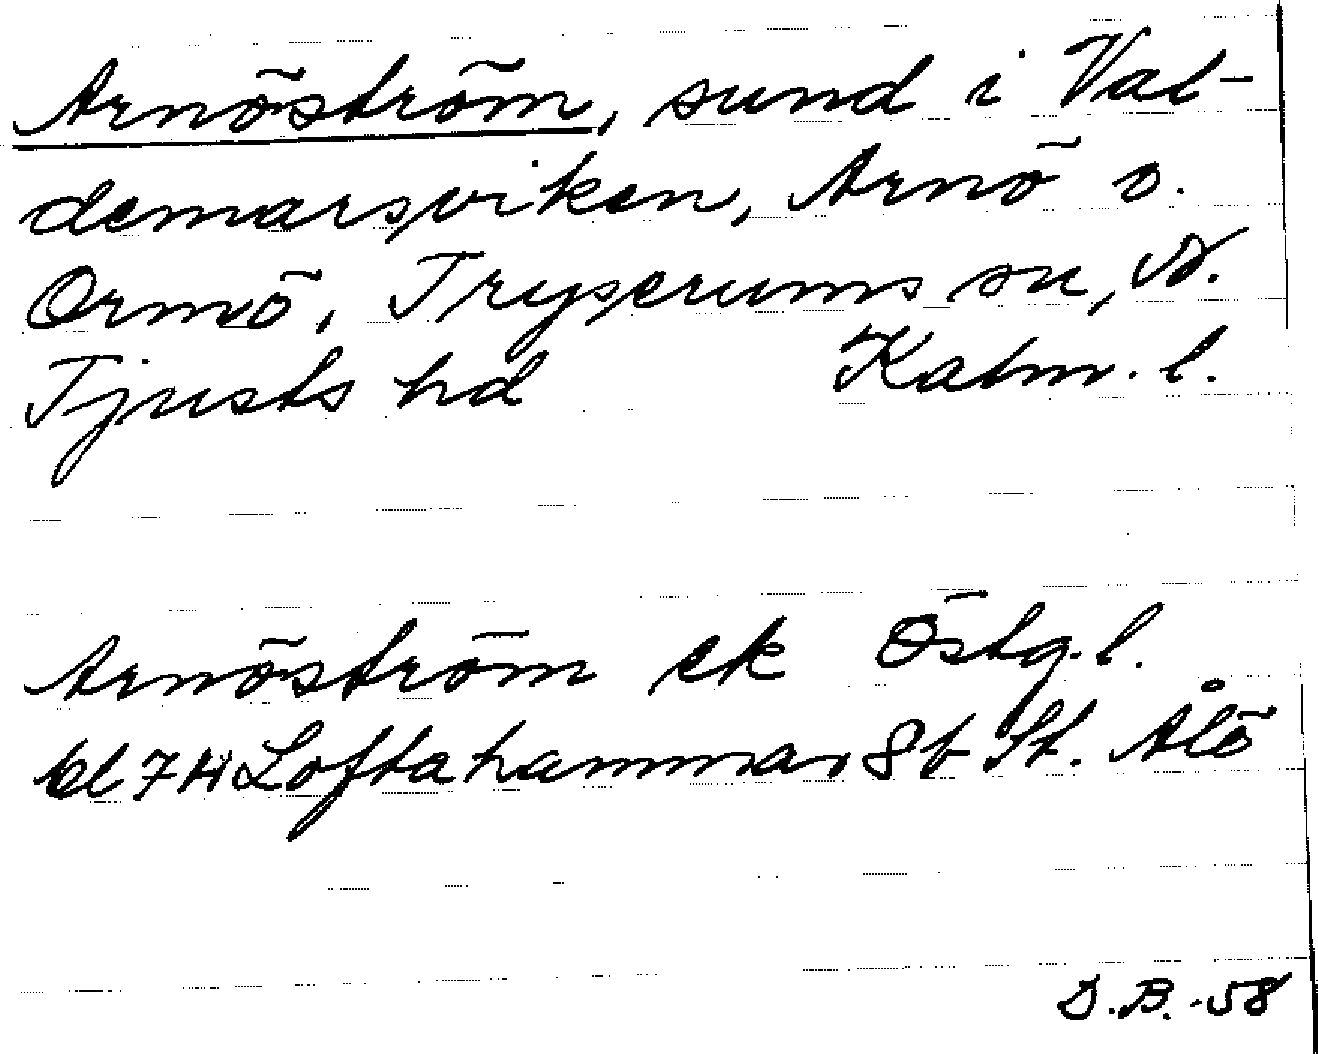 Arnöström, sund i Val-
demarsviken, Arnö o.
Ormö, Tryserums sn, N.
Tjusts hd Kalm. l.
Arnöström ek Östg. l.
bl 7H Loftahammar 8f St. Ålö
D.B.-58